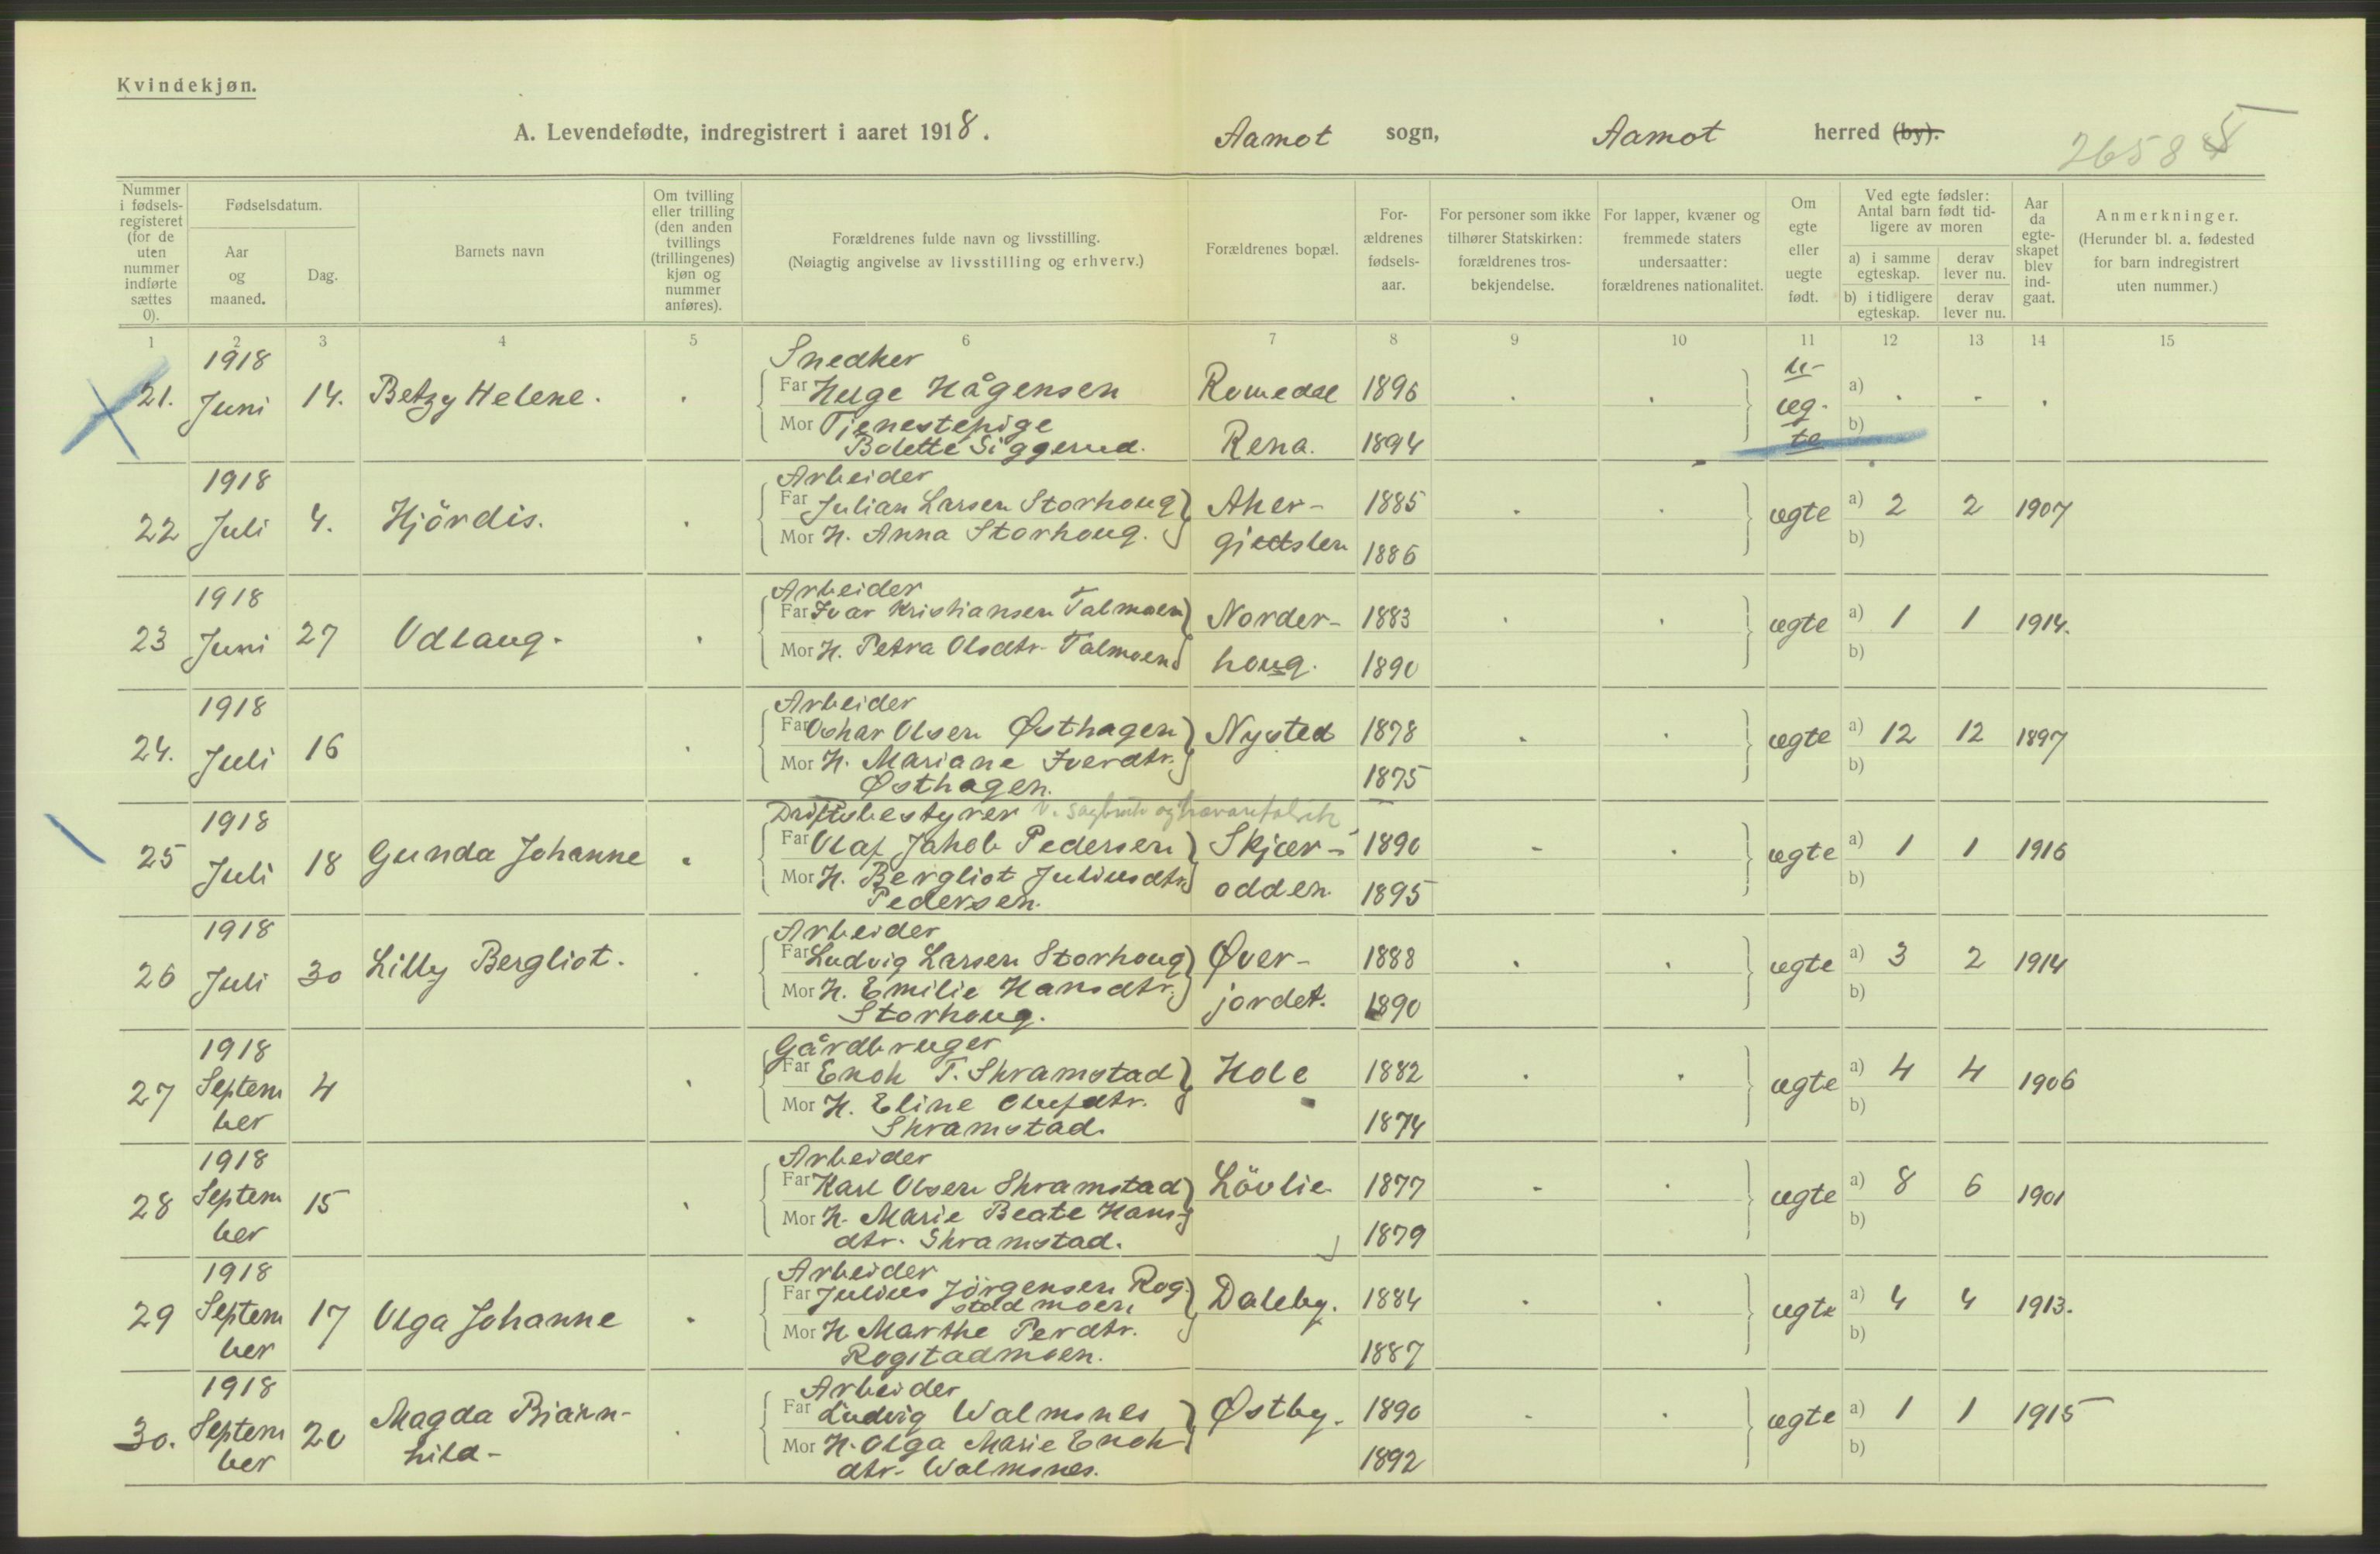 Kvindekjøn.
A. Levendefødte, indregistrert i aaret 1918. Aamot sogn, Aamot herred (by).
2658
Nummer i fødsels-registeret (for de uten nummer indførte sættes 0).
Fødselsdatum.
Aar og maaned.
Dag.
Barnets navn
Om tvilling eller trilling (den anden tvillings (trillingenes) kjøn og nummer anføres).
Forældrenes fulde navn og livsstilling.
(Nøiagtig angivelse av livsstilling og erhverv.)
Forældrenes bopæl.
For-ældrenes fødsels-aar.
For personer som ikke tilhører Statskirken: forældrenes tros-bekjendelse.
For lapper, kvæner og fremmede staters undersaatter: forældrenes nationalitet.
Om egte eller uegte født.
Ved egte fødsler: Antal barn født tid-ligere av moren
a) i samme egteskap.
derav lever nu.
b) i tidligere egteskap.
derav lever nu.
Aar da egte-skapet blev ind-gaat.
Anmerkninger.
(Herunder bl. a. fødested for barn indregistrert uten nummer.)
1 2 3 4 5 6 7 8 9 10 11 12 13 14 15
1918 Snedker u-
21. Juni 14. Betzy Helene. Far Huge Hågensen Romedal 1896 æg- a)
Mor Tjenestepige te b)
Bolette Siggerud. Rena. 1894
1918 Arbeider
22 Juli 4. Hjördis. Far Julian Larsen Storhoug Aker- 1885 ægte a) 2 2 1907
Mor H. Anna Storhoug. gjedslen 1886 b)
1918 Arbeider
23 Juni 27 Odlaug. Far Ivar Kristiansen Talmoen Norder- 1883 ægte a) 1 1 1914.
Mor H. Petra Olsdtr. Talmoen houg. 1890 b)
1918 Arbeider
24. Juli 16 Far Oskar Olsen Østhagen Nysted 1878 ægte a) 12 12 1897
Mor H. Mariane Iverdtr. b)
Østhagen. 1875
1918 Driftsbestyrer v. sagbruk og trævarefabrik
25 Juli 18 Gunda Johanne Far Olaf Jakob Pedersen Skjær- 1890 ægte a) 1 1 1916
Mor H. Bergliot Juliusdtr. odden 1895 b)
Pedersen.
1918 Arbeider
26 Juli 30 Lilly Bergliot. Far Ludvig Larsen Storhoug Øver- 1888 ægte a) 3 2 1914
Mor H. Emilie Hansdtr. jordet. 1890 b)
Storhoug.
1918 Gårdbruger
27 Septem 4 Far Enok T. Skramstad Hole 1882 ægte a) 4 4 1906
ber Mor H. Eline Olufdtr. b)
Skramstad. 1874
1918 Arbeider
28 Septem 15 Far Karl Olsen Skramstad Lövlie 1877 ægte a) 8 6 1901
ber Mor H. Marie Beate Hans- b)
dtr. Skramstad. 1879
1918 Arbeider
29 Septem 17 Olga Johanne Far Julius Jörgensen Rog- Daleby. 1884 ægte a) 4 4 1913.
stadmoen
ber Mor H. Marthe Perdtr. b)
Rogstadmoen. 1887
1918 Arbeider
30. Septem 20 Magda Bjarn- Far Ludvig Walmsnes Østby. 1890 ægte a) 1 1 1915
ber hild- Mor H. Olga Marie Enok b)
dtr. Walmsnes. 1892